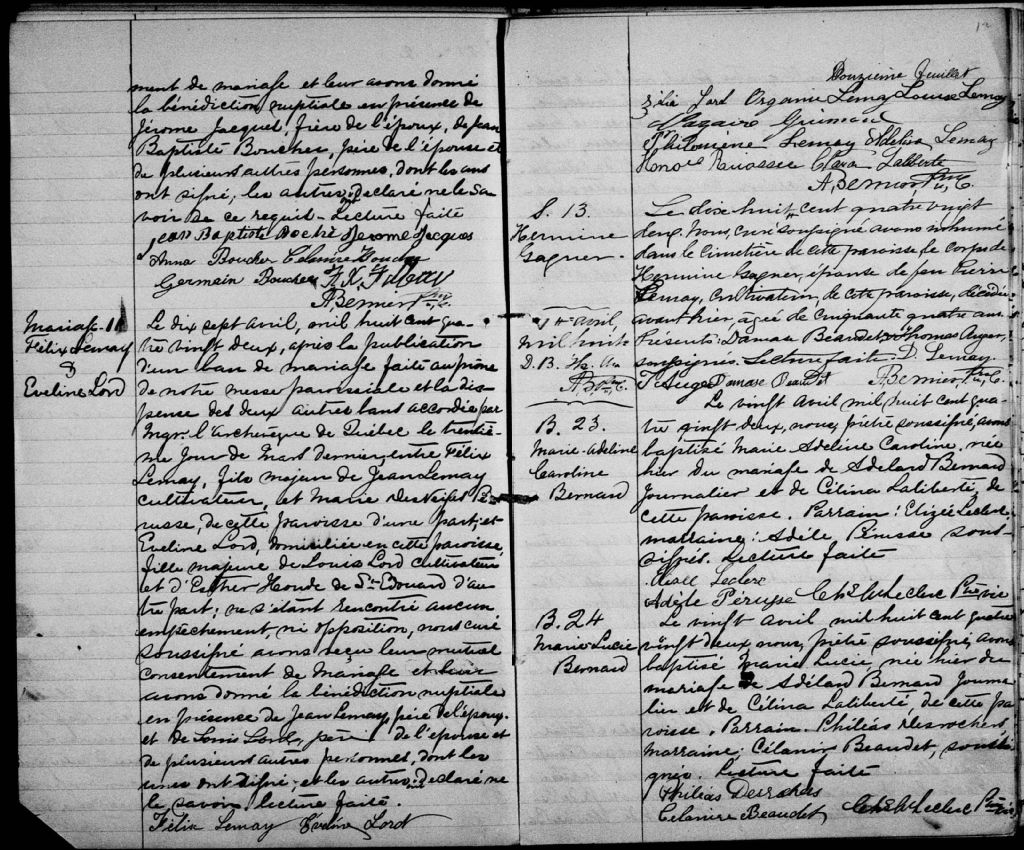 ment de mariage et leur avons donné
la bénédiction nuptiale en présence de
Jérome Jacques, frère de l'époux, de Jean
Baptiste Boucher, père de l'épouse et
de plusieurs autres personnes, dont les uns
ont signé, les autres ont déclaré ne le sa-
voir de ce requis - Lecture faite
Jean Baptiste Jérome Jacques
Anna Boucher
Germain Boucher
A Bernier Ptre
Mariage - 11
Félix Lemay
&
Eveline Lord
Le dix sept avril, mil huit cent qua-
tre vingt deux, après la publication
d'un ban de mariage faite au prône
de notre messe paroissiale et la dis-
pense des deux autres bans accordée par
Mgr. l'Archevêque de Québec le trentiè-
me jour de Mars dernier, entre Félix
Lemay, fils majeur de Jean Lemay
cultivateur, et Marie des Neiges Pé-
russe, de cette paroisse d'une part; et
Eveline Lord, domiciliée en cette paroisse,
fille majeure de Louis Lord cultivateur
et d'Esther Houde de St Edouard d'au-
tre part; ne s'étant rencontré aucun
empêchement, ni opposition, nous curé
soussigné avons reçu leur mutuel
consentement de mariage et leur
avons donné la bénédiction nuptiale
en présence de Jean Lemay, père de l'époux,
et de Louis Lord, père de l'épouse et
de plusieurs autres personnes, dont les
unes ont signé; et les autres ont déclaré ne
le savoir lecture faite.
Félix Lemay Eveline Lord
12
Douzième feuillet
Lord Organie Lemay Louise Lemay
Nazaire Grimard
Philomène Lemay Adelisa Lemay
Honoré Clara Laliberté
A Bernier, Ptre C.
S. 13.
Hermine
Gagner
Le dix huit, cent quatre vingt
deux, Nous, curé soussigné avons inhumé
dans le cimetière de cette paroisse le corps de
Hermine Gagner, épouse de feu Pierre
Lemay, cultivateur, de cette paroisse, décédée
avant hier agée de cinquante quatre ans
Présents: Damase Beaudet & Thomas Auger,
soussignés. Lecture faite. D. Lemay.
T Auger Damase Beaudet A Bernier, Ptre C.
avril,
mil huit
B. 23.
Marie-Adeline
Caroline
Bernard
Le vingt avril mil huit cent qua-
tre vingt deux, nous, prêtre soussigné, avons
baptisé Marie Adeline Caroline, née
hier du mariage de Adélard Bernard
journalier et de Célina Laliberté, de
cette paroisse. Parrain: Elizée Leclerc
marraine: Adèle Pérusse sous-
signés. Lecture faite
Leclerc
Adèle Pérusse Chs Leclerc Ptre vic
B. 24
Marie Lucie
Bernard
Le vingt avril mil huit cent quatre
vingt deux nous, prêtre soussigné, avons
baptisé Marie Lucie, née hier du
mariage de Adélard Bernard journa-
lier et de Célina Laliberté, de cette pa-
roisse. Parrain: Philéas Desrochers,
marraine: Célanire Beaudet, soussi-
gnés. Lecture faite
Philias Desrochers
Celanire Beaudet Chs Leclerc Ptre